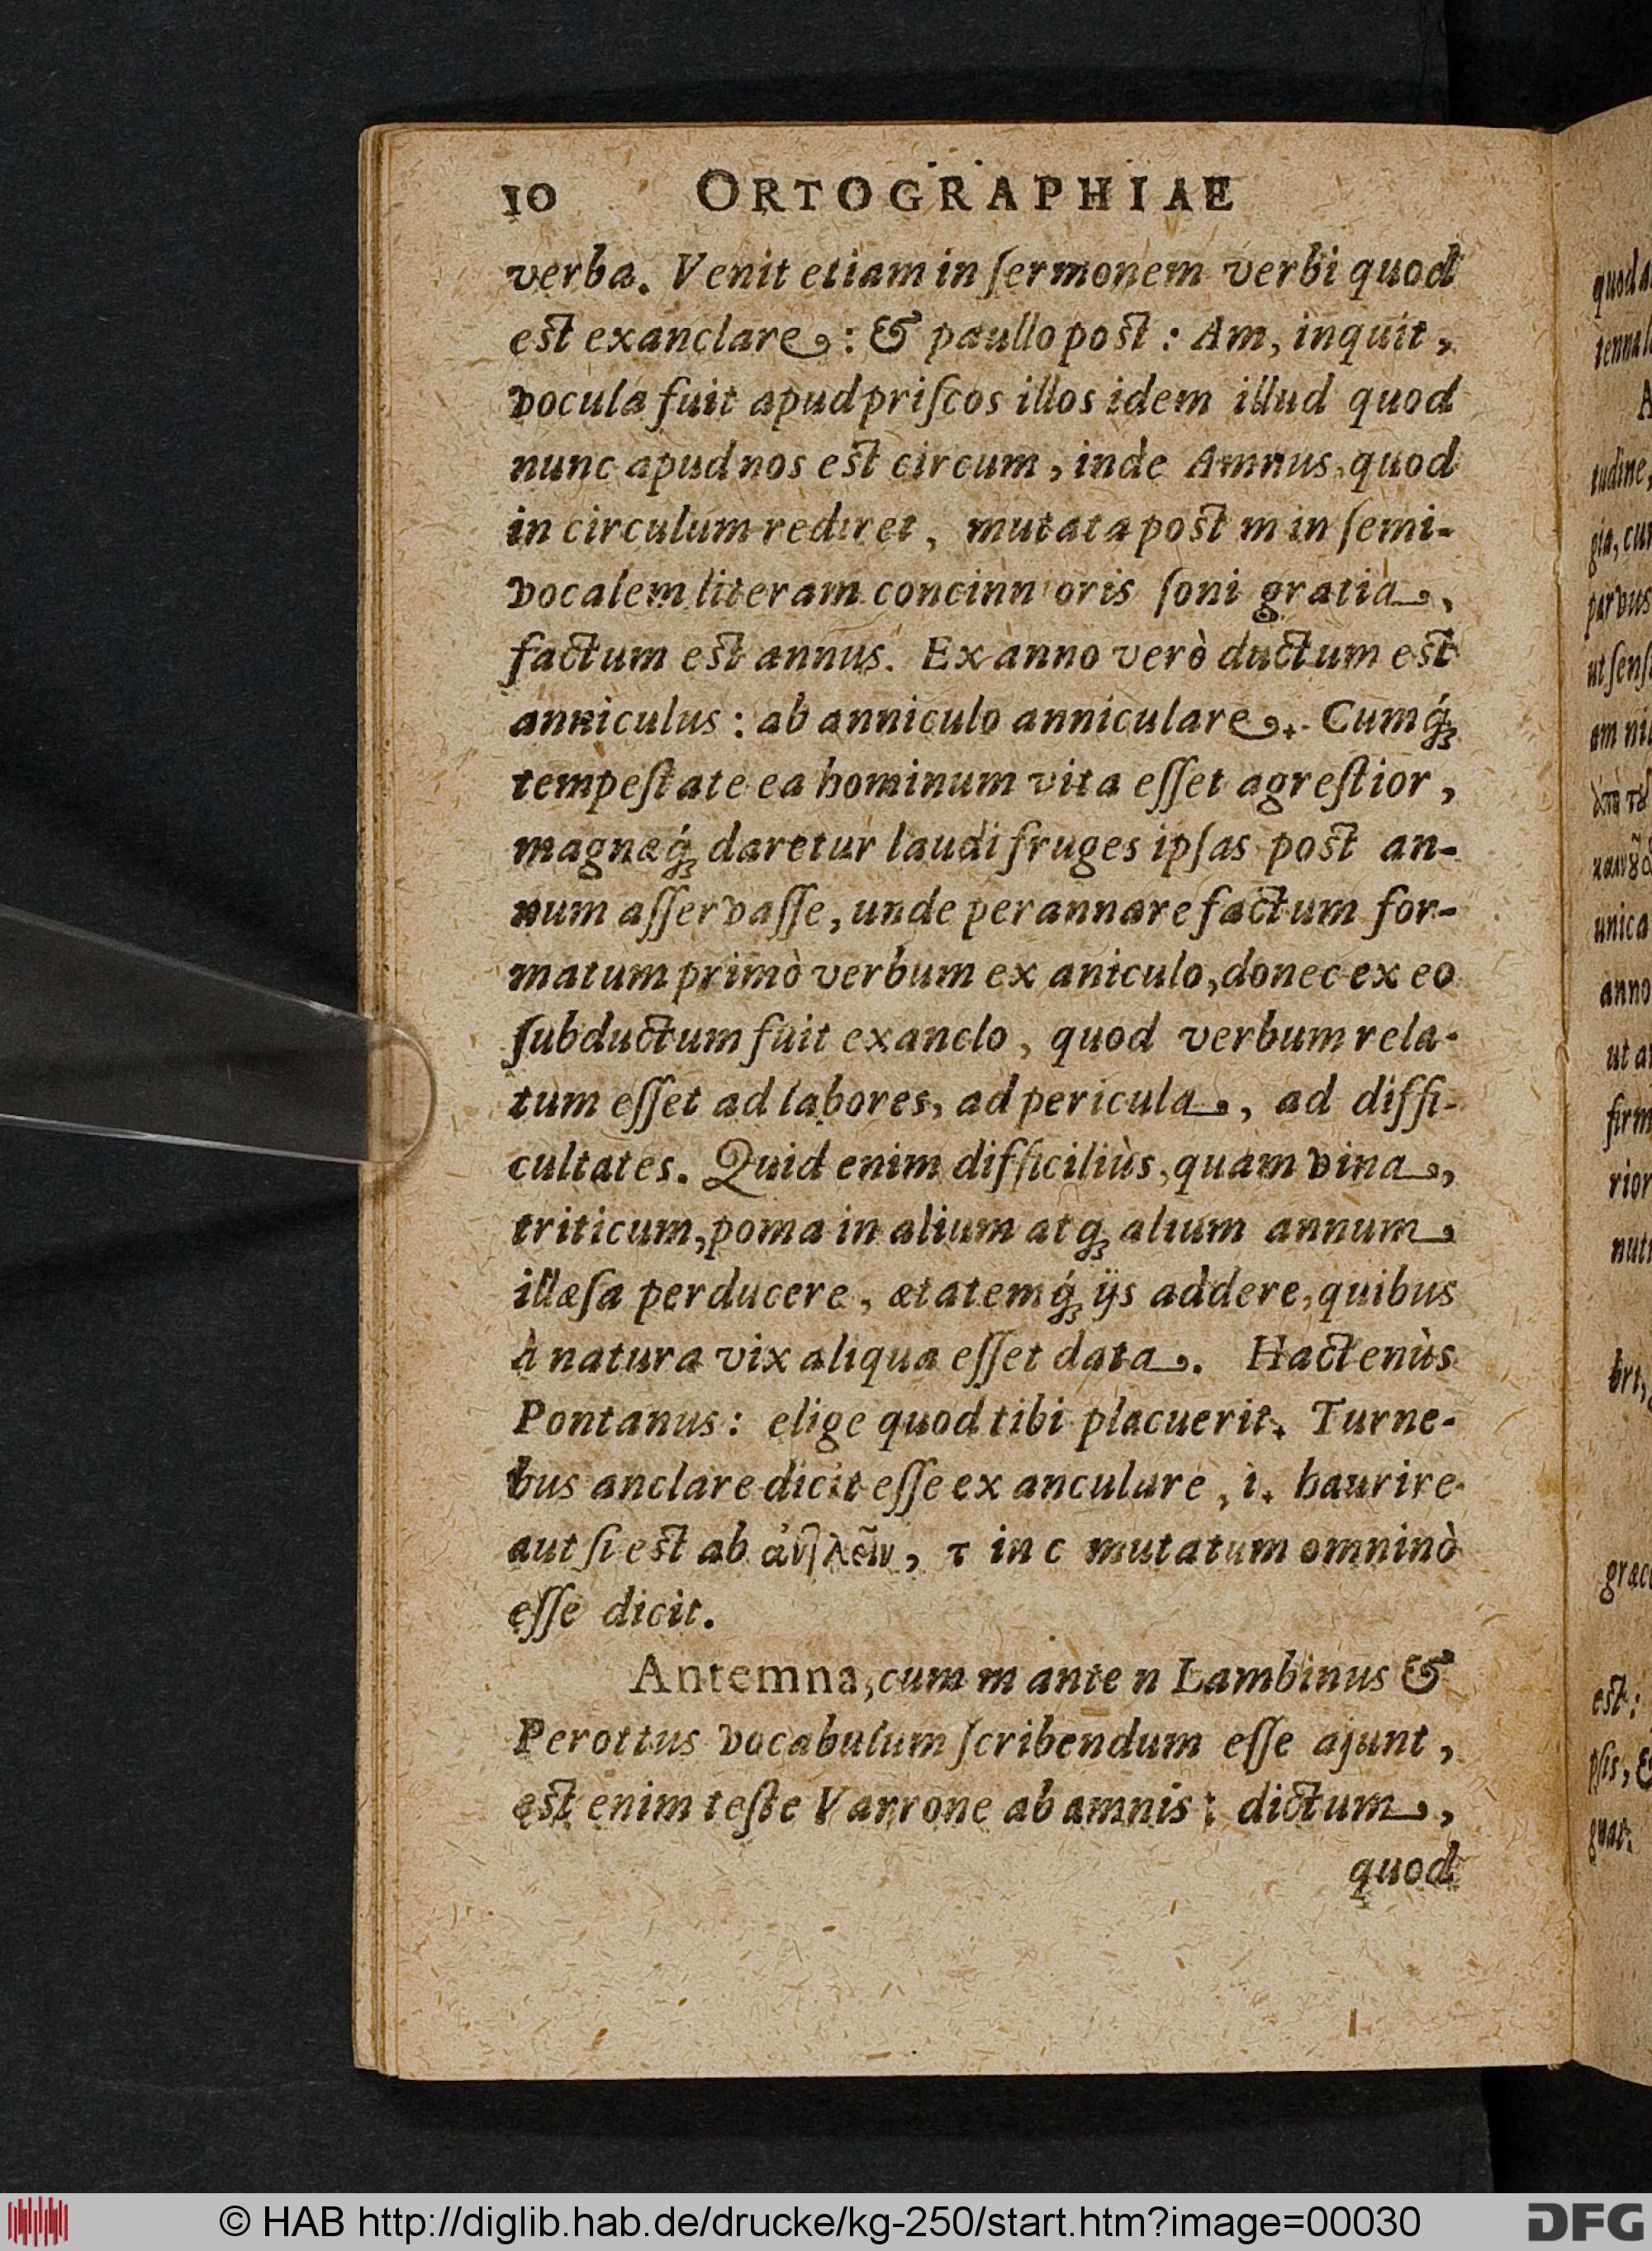 10 ORTOGRAPHIAE
verba. Venit etiam in ſermonem verbi quod
est exanclare: & paullo post: Am, inquit,
vocula fuit apud priſcos illos idem illud quod
nunc apud nos est circum, inde Amnus, quod
in circulum rediret, mutata post m in ſemi-
vocalem literam concinn oris ſoni gratia,
factum est annus. Ex anno verò ductum est
anniculus: ab anniculo anniculare. Cumq́ꝫ
tempeſtate ea hominum vita eſſet agreſtior,
magnæq́ꝫ daretur laudi fruges ipſas post an-
num aſſervaſſe, unde perannare factum for-
matum primò verbum ex aniculo, donec ex eo
ſubductum fuit exanclo, quod verbum rela-
tum eſſet ad labores, ad pericula, ad diffi-
cultates. Quid enim difficiliùs, quàm vina,
triticum, poma in alium atqꝫ alium annum
illæſa perducere, ætatemq́ꝫ ijs addere, quibus
à natura vix aliqua eſſet data. Hactenùs
Pontanus: elige quod tibi placuerit. Turne-
bus anclare dicit eſſe ex anculare, i. haurire
aut ſi est ab ἀντλεῖν, τ in c mutatum omninò
eſſe dicit.
Antemna, cum m ante n Lambinus &
Perottus vocabulum ſcribendum eſſe ajunt,
est enim teſte Varrone ab amnis: dictum,
quod
quod
unica
anno
© HAB http://diglib.hab.de/drucke/kg-250/start.htm?image=00030
DFG